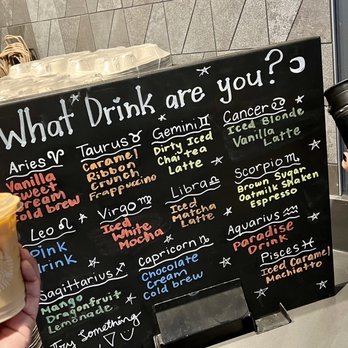 What Drink are you?
Aries ♈
Vanilla
Sweet
Cream
Cold brew
Taurus ♉
Caramel
Ribbon
Crunch
Frappuccino
Gemini ♊
Dirty Iced
Chai tea
Latte
Cancer ♋
Iced Blonde
Vanilla
Latte
Leo ♌
Pink
Drink
Virgo ♍
Iced
White
Mocha
Libra ♎
Iced
Matcha
Latte
Scorpio ♏
Brown Sugar
Oatmilk Shaken
Espresso
Sagittarius ♐
Mango
Dragonfruit
Lemonade
Capricorn ♑
Chocolate
Cream
Cold brew
Aquarius ♒
Paradise
Drink
Pisces ♓
Iced Caramel
Machiatto
Try Something